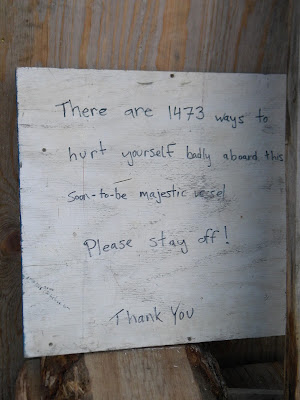 There are 1473 ways to
hurt yourself badly aboard this
Soon-to-be majestic vessel
Please stay off!
Thank You